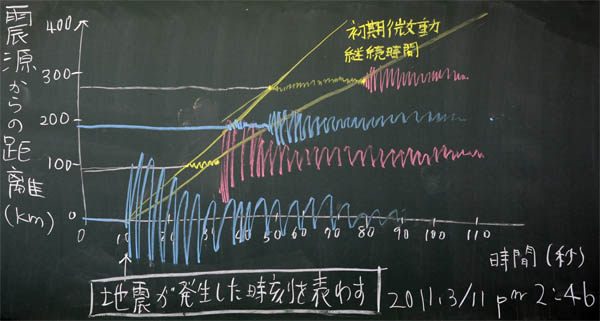 震源からの距離(km)
400
初期微動
継続時間
300
200
100
0
0 10 20 30 40 50 60 70 80 90 100 110
時間(秒)
地震が発生した時刻を表わす
2011.3/11 pm 2:46